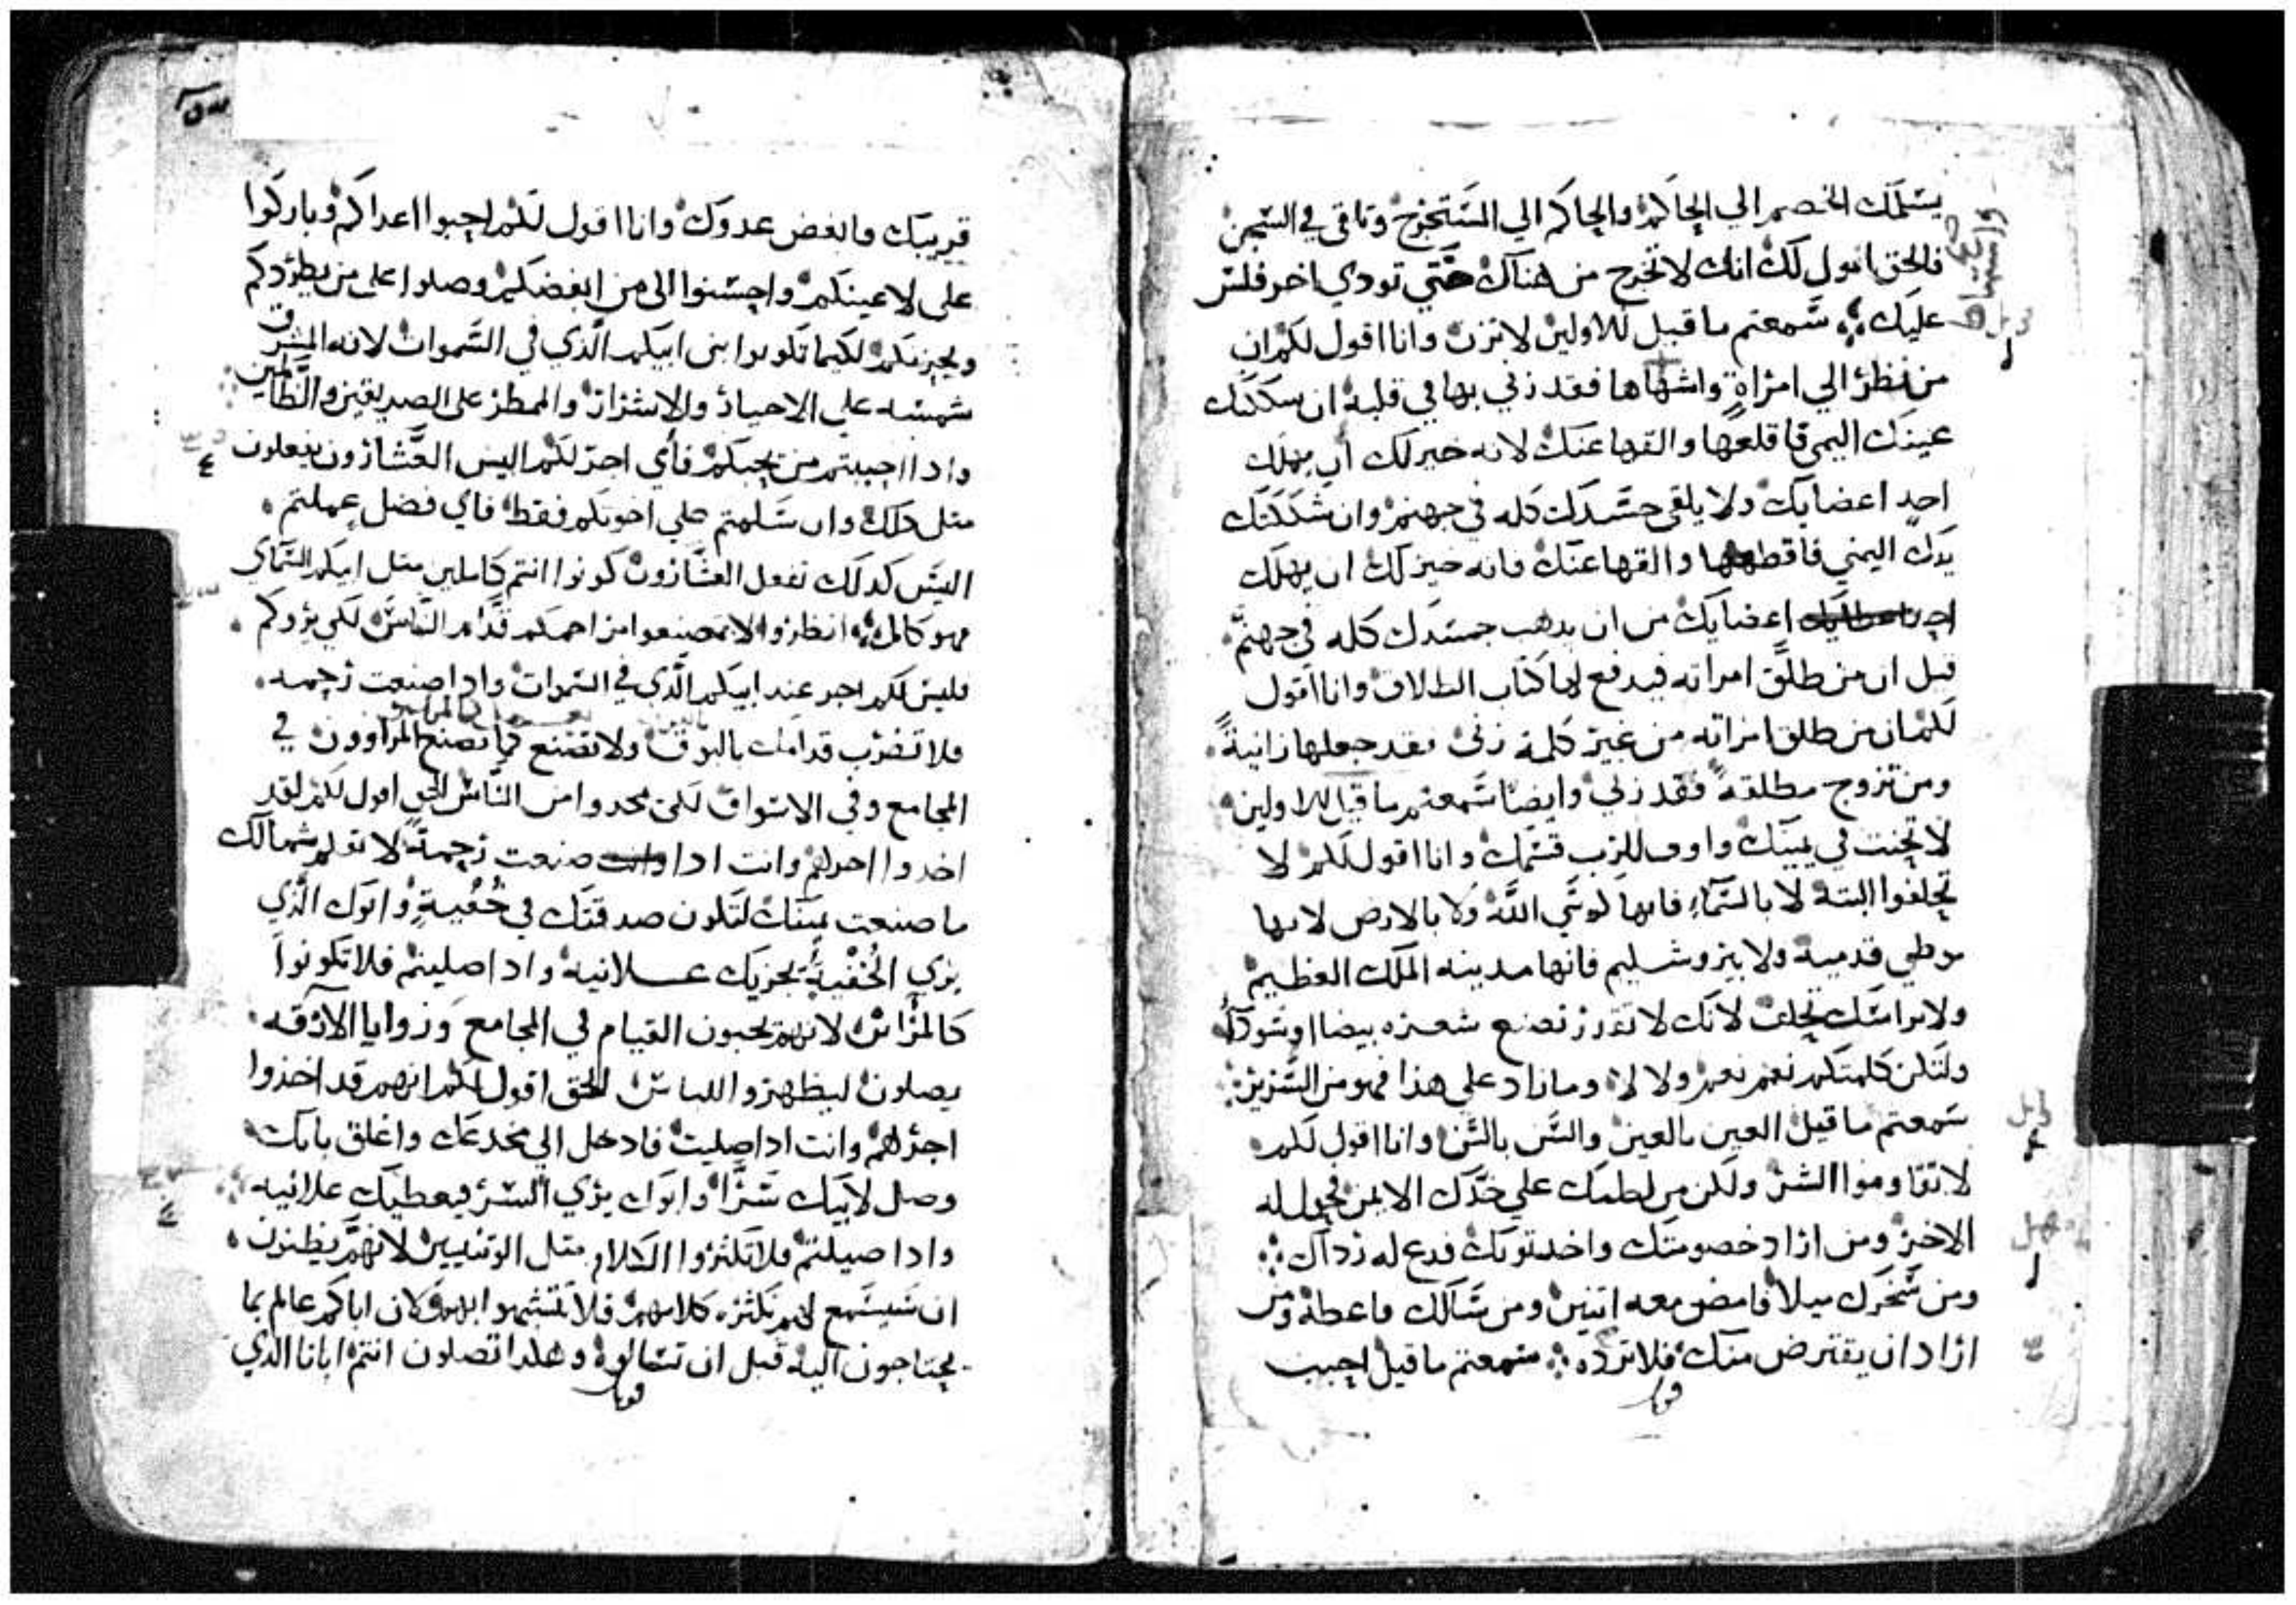 يسلمك الخصم الي الحاكم والحاكم الي المستخرج وتلقي في السجن
فالحق اقول لك انك لا تخرج من هناك حتي تودي اخر فلس
عليك سمعتم ما قيل للاولين لا تزن وانا اقول لكم ان
من نظر الي امراة واشتهاها فقد زني بها في قلبه ان شككتك
عينك اليمي فاقلعها والقها عنك لانه خير لك ان يهلك
احد اعضايك ولا يلقي جسدك كله في جهنم وان شككتك
يدك اليمني فاقطعها والقها عنك فانه خير لك ان يهلك
احد اعضايك من ان يدهب جسدك كله في جهنم
قيل ان من طلق امراته فيدفع لها كتاب الطلاق وانا اقول
لكم ان من طلق امراته من غير كلمة زني فقد جعلها زانية
ومن تزوج مطلقة فقد زني وايضا سمعتم ما قيل للاولين
لا تحنت في يمينك واوف للرب قسمك وانا اقول لكم لا
تحلفوا البتة لا بالسماء فانها كرسي الله ولا بالارض لانها
موطي قدميه ولا بيروشليم فانها مدينه الملك العظيم
ولا براسك تحلف لانك لا تقدر تصنع شعره بيضا او سودآ
ولتكن كلمتكم نعم نعم ولا لا وما زاد علي هذا فهو من الشرير
سمعتم ما قيل العين بالعين والسن بالسن وانا اقول لكم
لا تقاوموا الشر ولكن من لطمك علي خدك الايمن فحول له
الاخر ومن اراد خصومتك واخد توبك فدع له رداك
ومن سخرك ميلا فامض معه اتنين ومن سالك فاعطه ومن
اراد ان يقترض منك فلا ترده سمعتم ما قيل احبب
قريبك وابغض عدوك وانا اقول لكم احبوا اعداكم وباركوا
علي لاعينكم واحسنوا الي من ابغضكم وصلوا علي من يطردكم
لكيما تكونوا بني ابيكم الذي في السموات لانه المشرق
شمسه علي الاخيار والاشرار والممطر علي الصديقين والظالمين
وادا احببتم من يحبكم فاي اجر لكم اليس العشارون يفعلون
متل دلك وان سلمتم علي اخوتكم فقط فاي فضل عملتم
اليس كدلك تفعل العشارون كونوا انتم كاملين متل ابيكم السماي
فهو كامل انظروا لا تصنعوا مراحمكم قدام الناس لكي يروكم
فليس لكم اجر عند ابيكم الذي في السموات وادا صنعت رحمه
فلا تضرب قدامك بالبوق ولا تصنع كما تصنع المراوون في
المجامع وفي الاسواق لكي يمجدوا من الناس الحق اقول لكم لقد
اخدوا اجرهم وانت ادا صنعت رحمة لا تعلم شمالك
ما صنعت يمينك لتكون صدقتك في خفية وابوك الذي
يري الخفية يجزيك علانية وادا صليتم فلا تكونوا
كالمرايين لانهم يحبون القيام في المجامع وزوايا الازقه
يصلون ليظهروا للناس الحق اقول لكم انهم قد اخذوا
اجرهم وانت ادا صليت فادخل الي مخدعك واغلق بابك
وصل لابيك سرا وابوك يري السر فيعطيك علانيه
وادا صليتم فلا تكتروا الكلام متل الوتنيين لانهم يظنون
ان سيسمع لهم بكتره كلامهم فلا تتشبهوا بهم لان اباكم عالم بما
تحتاجون اليه قبل ان تسالوه وهكدا تصلون انتم ابانا الدي